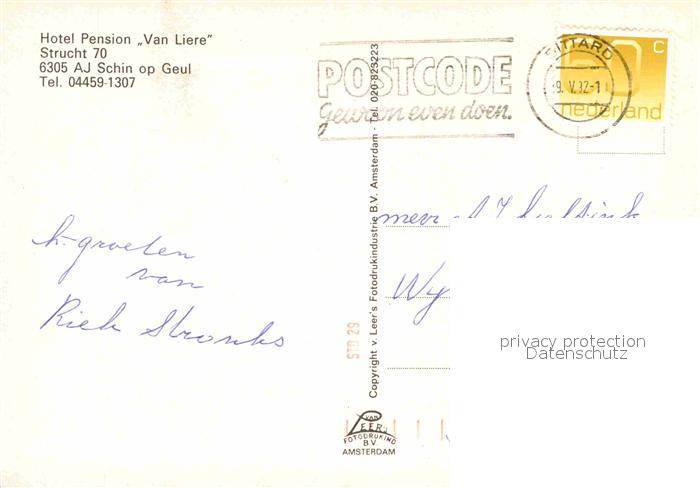 Hotel Pension „Van Liere"
Strucht 70
6305 AJ Schin op Geul
Tel. 04459-1307
POSTCODE
Gewoon even doen.
SITTARD
9.V.82-1
C
nederland
h. groeten
van
Riek Stronks
Copyright v. Leer's Fotodrukindustrie B.V. Amsterdam - Tel. 020-823223
STD 29
mevr.
Wy
privacy protection
Datenschutz
VAN
LEER'S
FOTODRUKIND
B.V.
AMSTERDAM